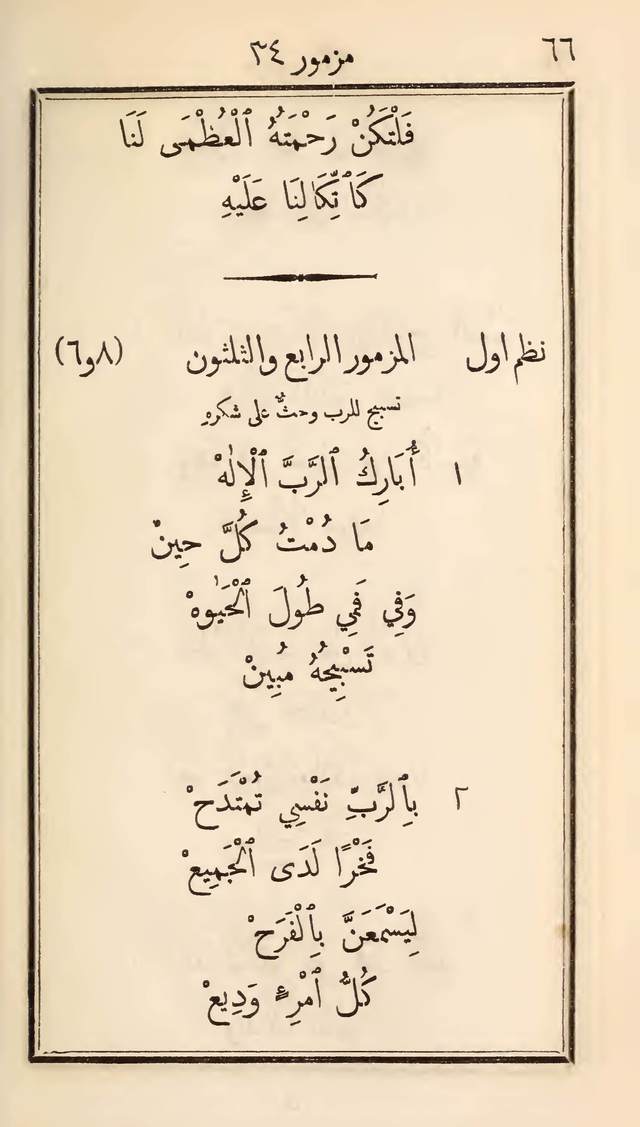 ٦٦ مزمور ٣٤
فَلْتَكُنْ رَحْمَتُهُ ٱلْعُظْمَى لَنَا
كَٱتِّكَالِنَا عَلَيْهِ
نظم اول المزمور الرابع والثلثون (٨و٦)
تسبيح للرب وحثٌّ على شكرهِ
١ أُبَارِكُ ٱلرَّبَّ ٱلْإِلٰهْ
مَا دُمْتُ كُلَّ حِينْ
وَفِي فَمِي طُولَ ٱلْحَيٰوهْ
تَسْبِيحُهُ مُبِينْ
٢ بِٱلرَّبِّ نَفْسِي تُمْتَدَحْ
فَخْرًا لَدَى ٱلْجَمِيعْ
لِيَسْمَعَنَّ بِٱلْفَرَحْ
كُلُّ ٱمْرِءٍ وَدِيعْ